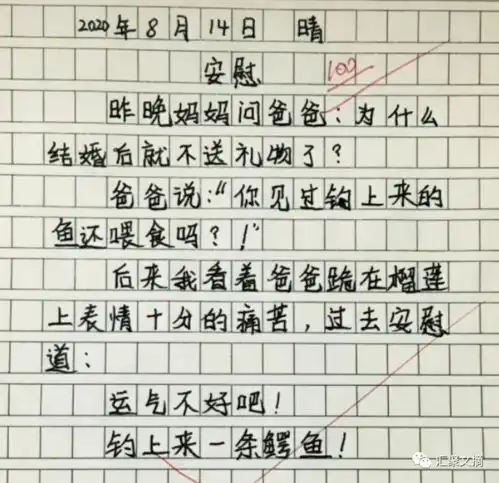 2020年8月14日 晴
安慰 100
昨晚妈妈问爸爸:为什么
结婚后就不送礼物了?
爸爸说:“你见过钓上来的
鱼还喂食吗?!”
后来我看着爸爸跪在榴莲
上表情十分的痛苦,过去安慰
道:
运气不好吧!
钓上来一条鳄鱼!
汇聚文摘